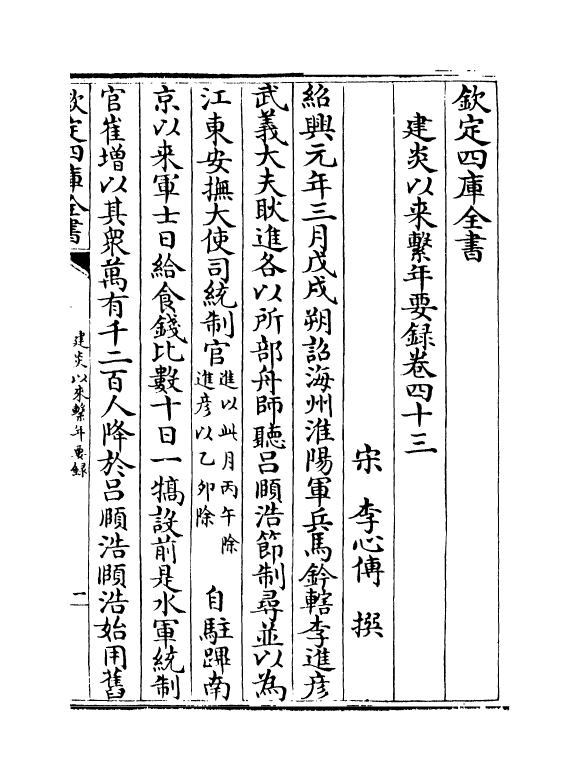 欽定四庫全書
建炎以来繫年要録卷四十三
宋 李心傳 撰
紹興元年三月戊戌朔詔海州淮陽軍兵馬鈐轄李進彦
武義大夫耿進各以所部舟師聽吕頤浩節制尋並以為
江東安撫大使司統制官進以此月丙午除進彦以乙卯除 自駐蹕南
京以来軍士日給食錢比數十日一犒設前是水軍統制
官崔増以其衆萬有千二百人降於吕頤浩頤浩始用舊
欽定四庫全書
建炎以来繫年要録